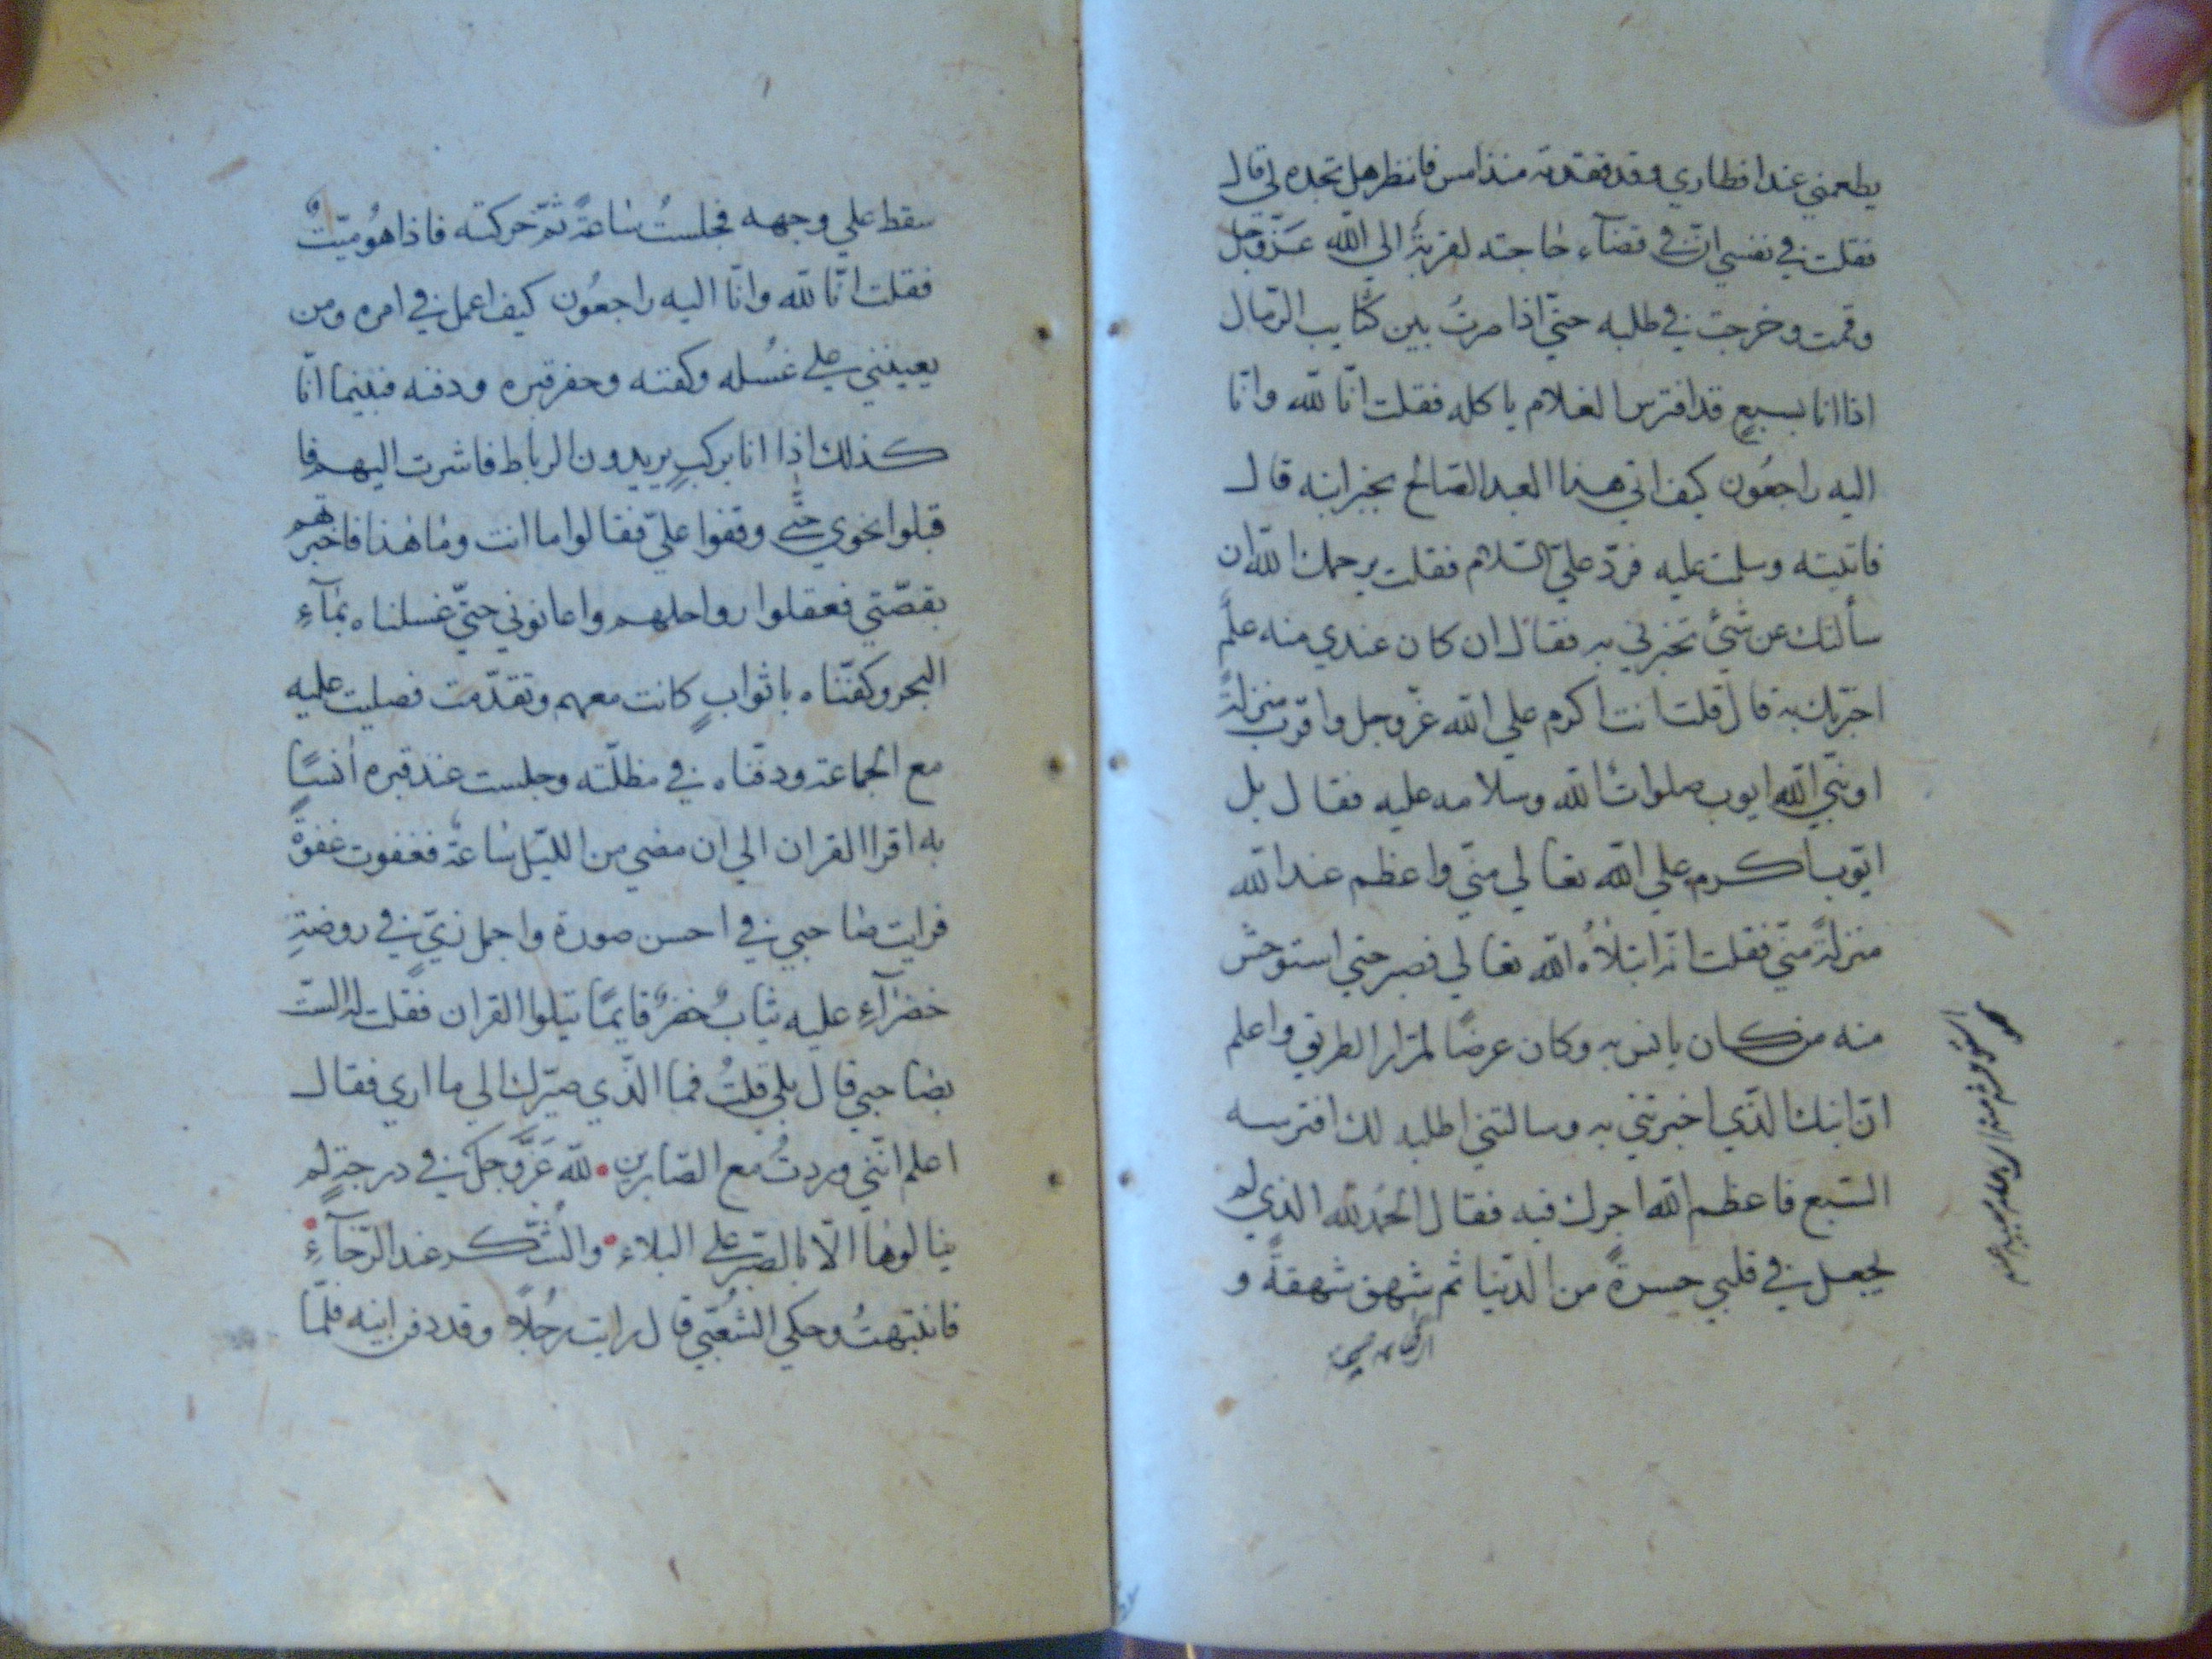 يطعمني عند افطاري وقد فقدته منذ امس فانظر هل تجده لي قال
فقلت في نفسي انّ في قضآء حاجته لقربةً الي اللّه عَزّوجل
وقمت وخرجت في طلبه حتيّ اذا صرتُ بين كثايب الرّمال
اذا انا بسبعٍ قد افترس الغلام ياكله فقلت انّا للّه وانّا
اليه راجعُون كيف اتي هذا العبد الصّالح بخبر ابنه قال
فاتيته وسلمت عليه فردّ عليّ السّلام فقلت يرحمك اللّه ان
سألتك عن شيئ تخبرني به فقال ان كان عندي منه علمٌ
اخبرتك به قال قلت انت اكرم علي اللّه عزّ وجل واقرب منزلةً
او نبيّ اللّه ايوب صلوات اللّه وسلامه عليه فقال بل
ايّوب اكرم علي اللّه تعالي منيّ واعظم عند اللّه
منزلةً منيّ فقلت انّه ابتلاهُ اللّه تعالي فصبر حتي استوحش
منه من كان يانس به وكان عرضًا لمرّار الطريق واعلم
انّ ابنك الذّي اخبرتني به وسالتني اطلبه لك افترسه
السّبع فاعظم اللّه اجرك فيه فقال الحمدُ للّه الذي لم
يجعل في قلبي حسرةً من الدّنيا ثم شهق شهقةً و
سقط علي وجهه فجلستُ ساعةً ثمّ حركته فاذا هُو ميّتٌ
فقلت انّا للّه وانّا اليه راجعُون كيف اعمل في امره ومن
يعينني علي غسُله وكفنه وحفر قبره ودفنه فبينما انا
كذلك اذا انا بركبٍ يريدون الرباط فاشرت اليهم فا
قبلوا نحوي حتيّ وقفوا عليّ فقالوا ما انت وما هذا فاخبرتهم
بقصّتي فعقلوا رواحلهم واعانوني حتيّ غسلناه بمآءِ
البحر وكفّناه باثوابٍ كانت معهم وتقدّمت فصليت عليه
مع الجماعة ودفنّاه في مظلّته وجلست عند قبره اُنسًا
به اقرا القران الي ان مضي من اللّيل ساعة فغفوت غفوةً
فرايت صاحبي في احسن صورة واجمل زيّ في روضةٍ
خضرآءِ عليه ثيابٌ خضرٌ قايمًا يتلوا القران فقلت له الستَ
بصاحبي قال بلي قلتُ فما الذّي صيّرك الي ما اري فقال
اعلم انّني وردتُ مع الصّابرين للّه عَزَّوَجَلّ في درجةٍ لم
ينالوها الّا بالصّبر علي البلاء والشّكر عند الرّخآءِ
فانتبهتُ وحكي الشّعبّي قال رايت رجُلًا وقد دفن ابنه فلمّا